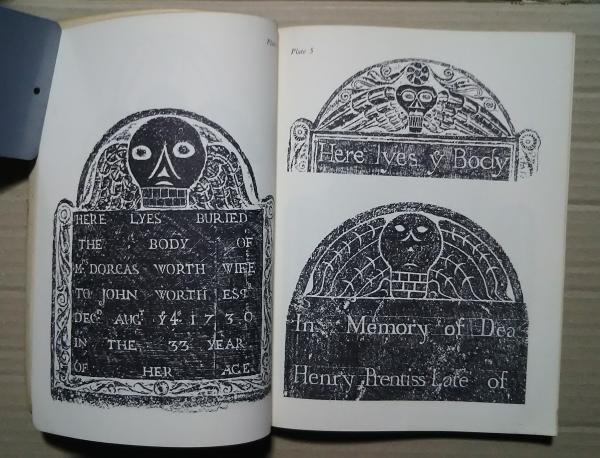 Plate
HERE LYES BURIED
THE BODY OF
Mrs DORCAS WORTH WIFE
TO JOHN WORTH ESQr
DECD AUGt Y4 1730
IN THE 33 YEAR
OF HER AGE
Plate 5
Here lyes ẏ Body
In Memory of Dea
Henry Prentiss Late of